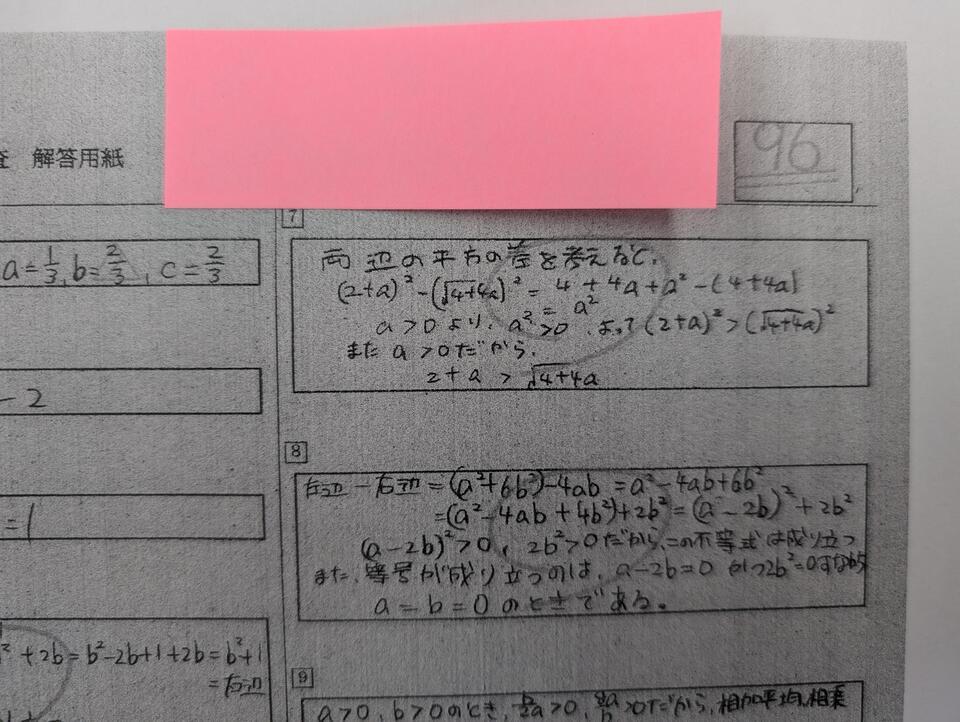 査 解答用紙
96
a=1/3, b=2/3, c=2/3
-2
=1
² +2b=b²-2b+1+2b=b²+1
=右辺
7
両辺の平方の差を考えると、
(2+a)²-(√4+4a)²=4+4a+a²-(4+4a)
=a²
a>0より、a²>0、よって(2+a)²>(√4+4a)²
また a>0だから、
2+a>√4+4a
8
左辺-右辺=(a²+6b²)-4ab=a²-4ab+6b²
=(a²-4ab+4b²)+2b²=(a-2b)²+2b²
(a-2b)²>0, 2b²>0だから、この不等式は成り立つ
また、等号が成り立つのは、a-2b=0 かつ2b²=0すなわち
a=b=0のときである。
9
a>0, b>0のとき, b/2a>0, >0だから, 相加平均, 相乗